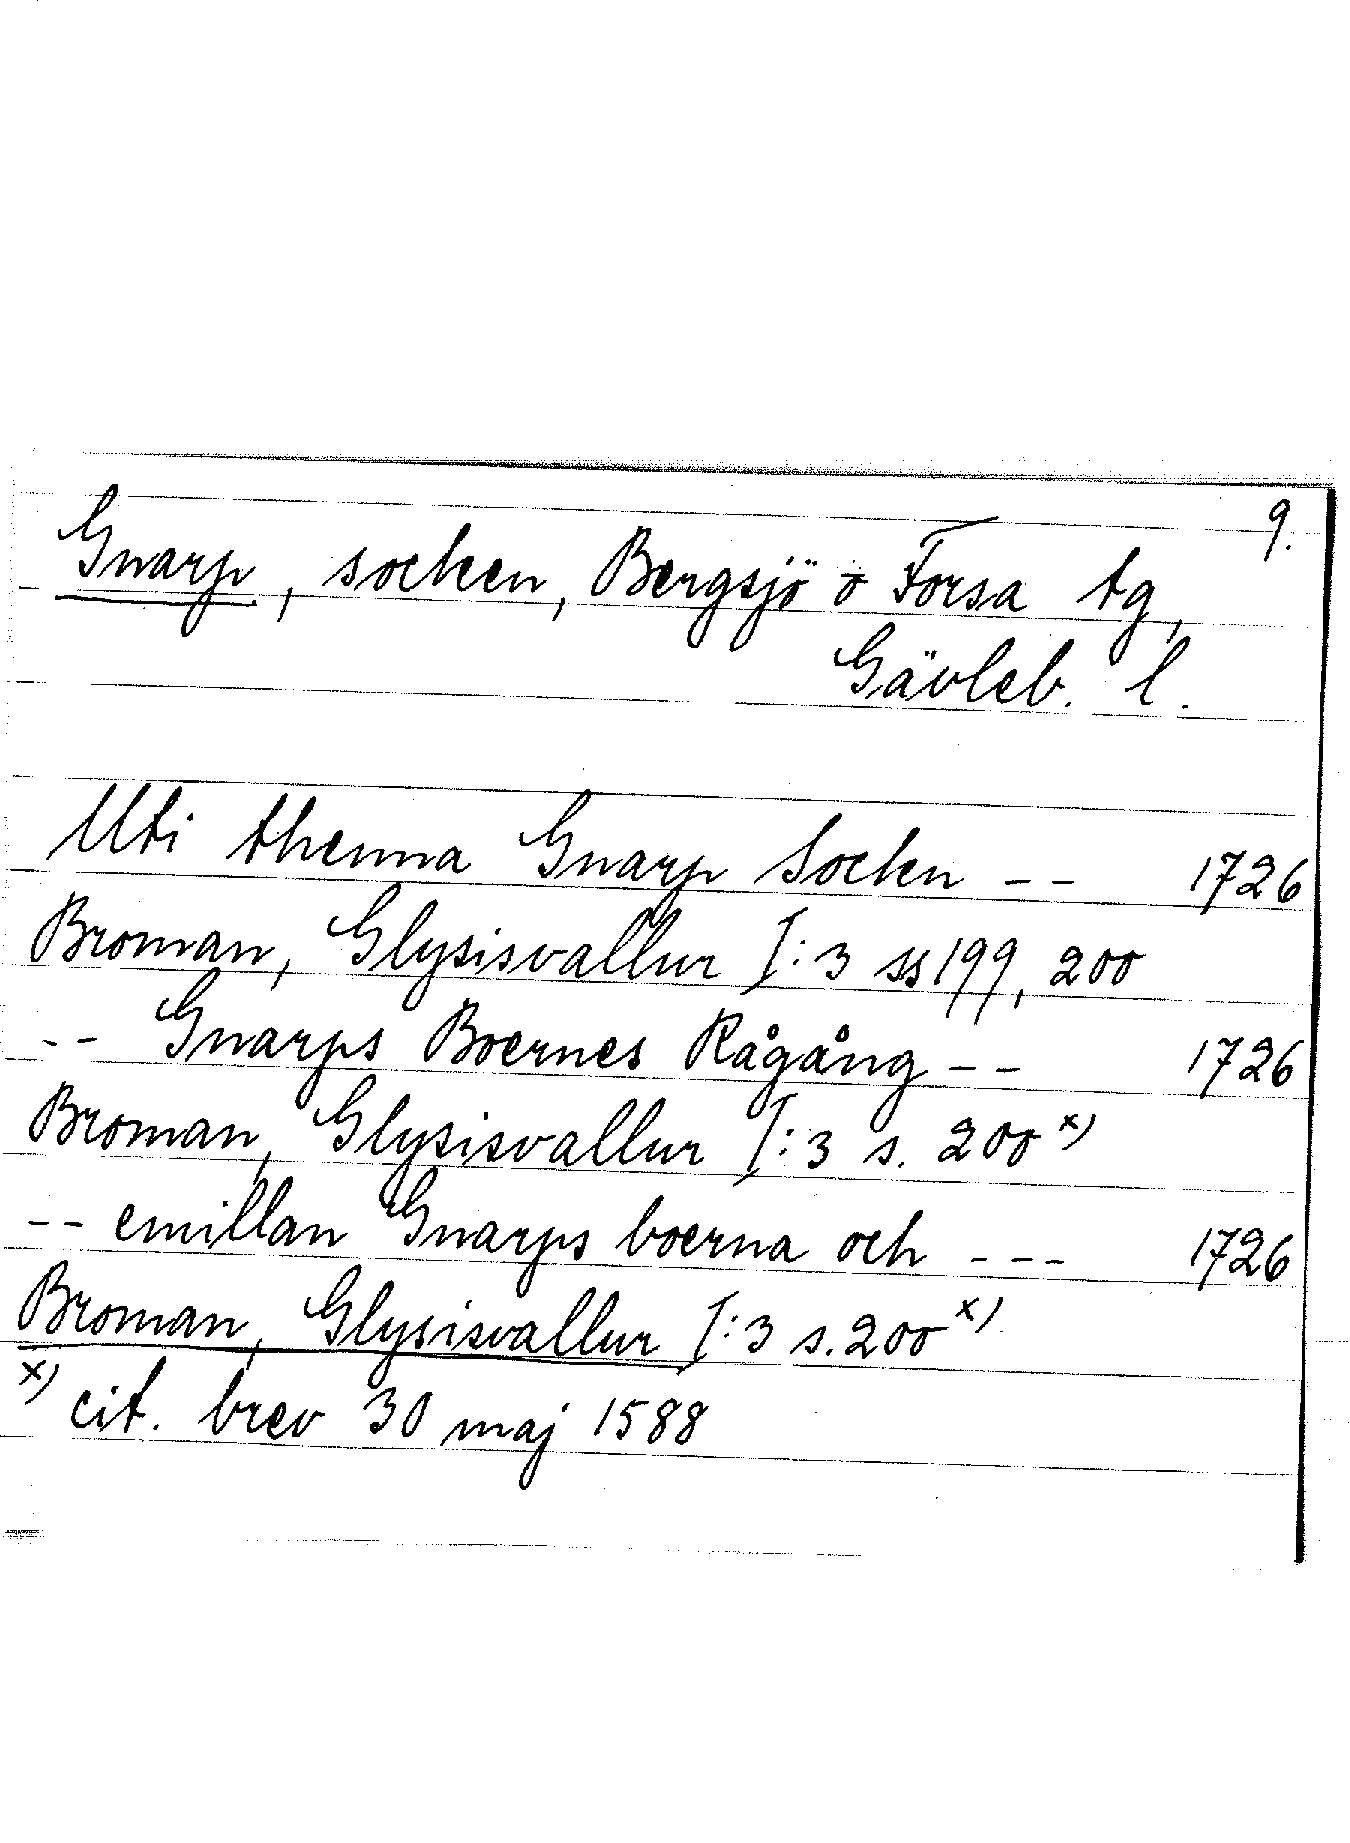 9.
Gnarp, socken, Bergsjö o Forsa tg,
Gävleb. l.
Uti thenna Gnarp Sockn -- 1726
Broman, Glysisvallur I:3 ss 199, 200
-- Gnarps Boernes Rågång -- 1726
Broman, Glysisvallur I:3 s. 200 x)
-- emillan Gnarps boerna och --- 1726
Broman, Glysisvallur I:3 s. 200 x)
x) cit. brev 30 maj 1588